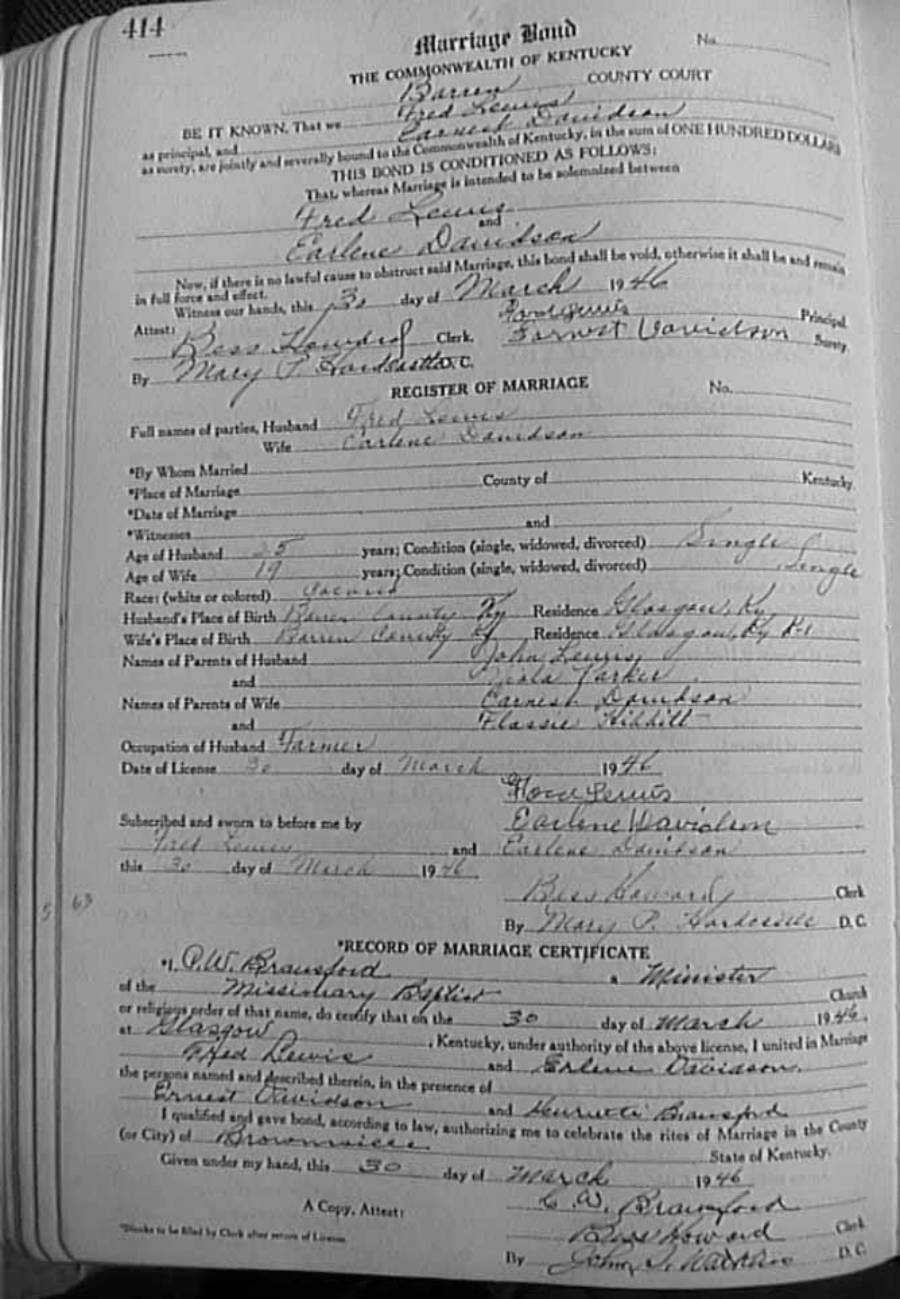 414
Marriage Bond
No.
THE COMMONWEALTH OF KENTUCKY
Barren COUNTY COURT
BE IT KNOWN, That we Fred Lewis
as principal, and Earnest Davidson
as surety, are jointly and severally bound to the Commonwealth of Kentucky, in the sum of ONE HUNDRED DOLLARS
THIS BOND IS CONDITIONED AS FOLLOWS:
That, whereas Marriage is intended to be solemnized between
Fred Lewis
and
Earlene Davidson
Now, if there is no lawful cause to obstruct said Marriage, this bond shall be void, otherwise it shall be and remain
in full force and effect.
Witness our hands, this 30 day of March 1946
Attest: Lewis Principal.
Bess Howard Clerk. Davidson Surety.
By Mary P. D. C.
REGISTER OF MARRIAGE
No.
Full names of parties, Husband Fred Lewis
Wife Earlene Davidson
*By Whom Married
*Place of Marriage County of Kentucky
*Date of Marriage
*Witnesses and
Age of Husband 25 years; Condition (single, widowed, divorced) Single
Age of Wife 19 years; Condition (single, widowed, divorced) Single
Race: (white or colored)
Husband's Place of Birth Barren County Ky Residence Glasgow, Ky
Wife's Place of Birth Barren County Ky Residence Glasgow, Ky R-1
Names of Parents of Husband John Lewis
and Parker
Names of Parents of Wife Earnest Davidson
and Flossie
Occupation of Husband Farmer
Date of License 30 day of March 1946
Lewis
Subscribed and sworn to before me by Earlene Davidson
Fred Lewis and Earlene Davidson
this 30 day of March 1946
Bess Howard Clerk
5 63
By Mary P. D. C.
*RECORD OF MARRIAGE CERTIFICATE
*I, Bransford a Minister
of the Missionary Baptist Church
or religious order of that name, do certify that on the 30 day of March 1946,
at Glasgow, Kentucky, under authority of the above license, I united in Marriage
Fred Lewis and Erlene Davidson.
the persons named and described therein, in the presence of
Ernest Davidson and Henrietta Bransford
I qualified and gave bond, according to law, authorizing me to celebrate the rites of Marriage in the County
(or City) of State of Kentucky.
Given under my hand, this 30 day of March 1946
Bransford
A Copy, Attest: Bess Howard Clerk
*Blanks to be filled by Clerk after return of License
By John D. C.